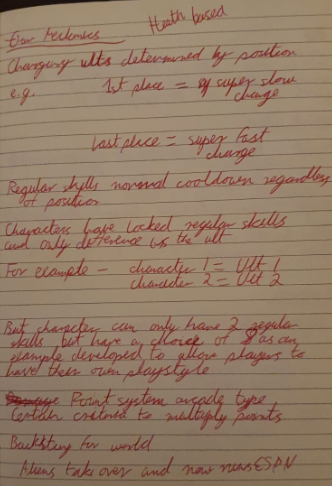 Health based
Game Mechanics
Charging ults determined by position
e.g. 1st place = super slow
charge
Last place = super fast
charge
Regular skills normal cooldown regardless
of position
Characters have locked regular skills
and only difference is the ult
For example - character 1 = Ult 1
character 2 = Ult 2
But character can only have 2 regular
skills but have a choice of 8 as an
example developed to allow players to
have their own playstyle
Point system arcade type
Certain criteria to multiply points
Backstory for world
Aliens take over and now runs ESPN